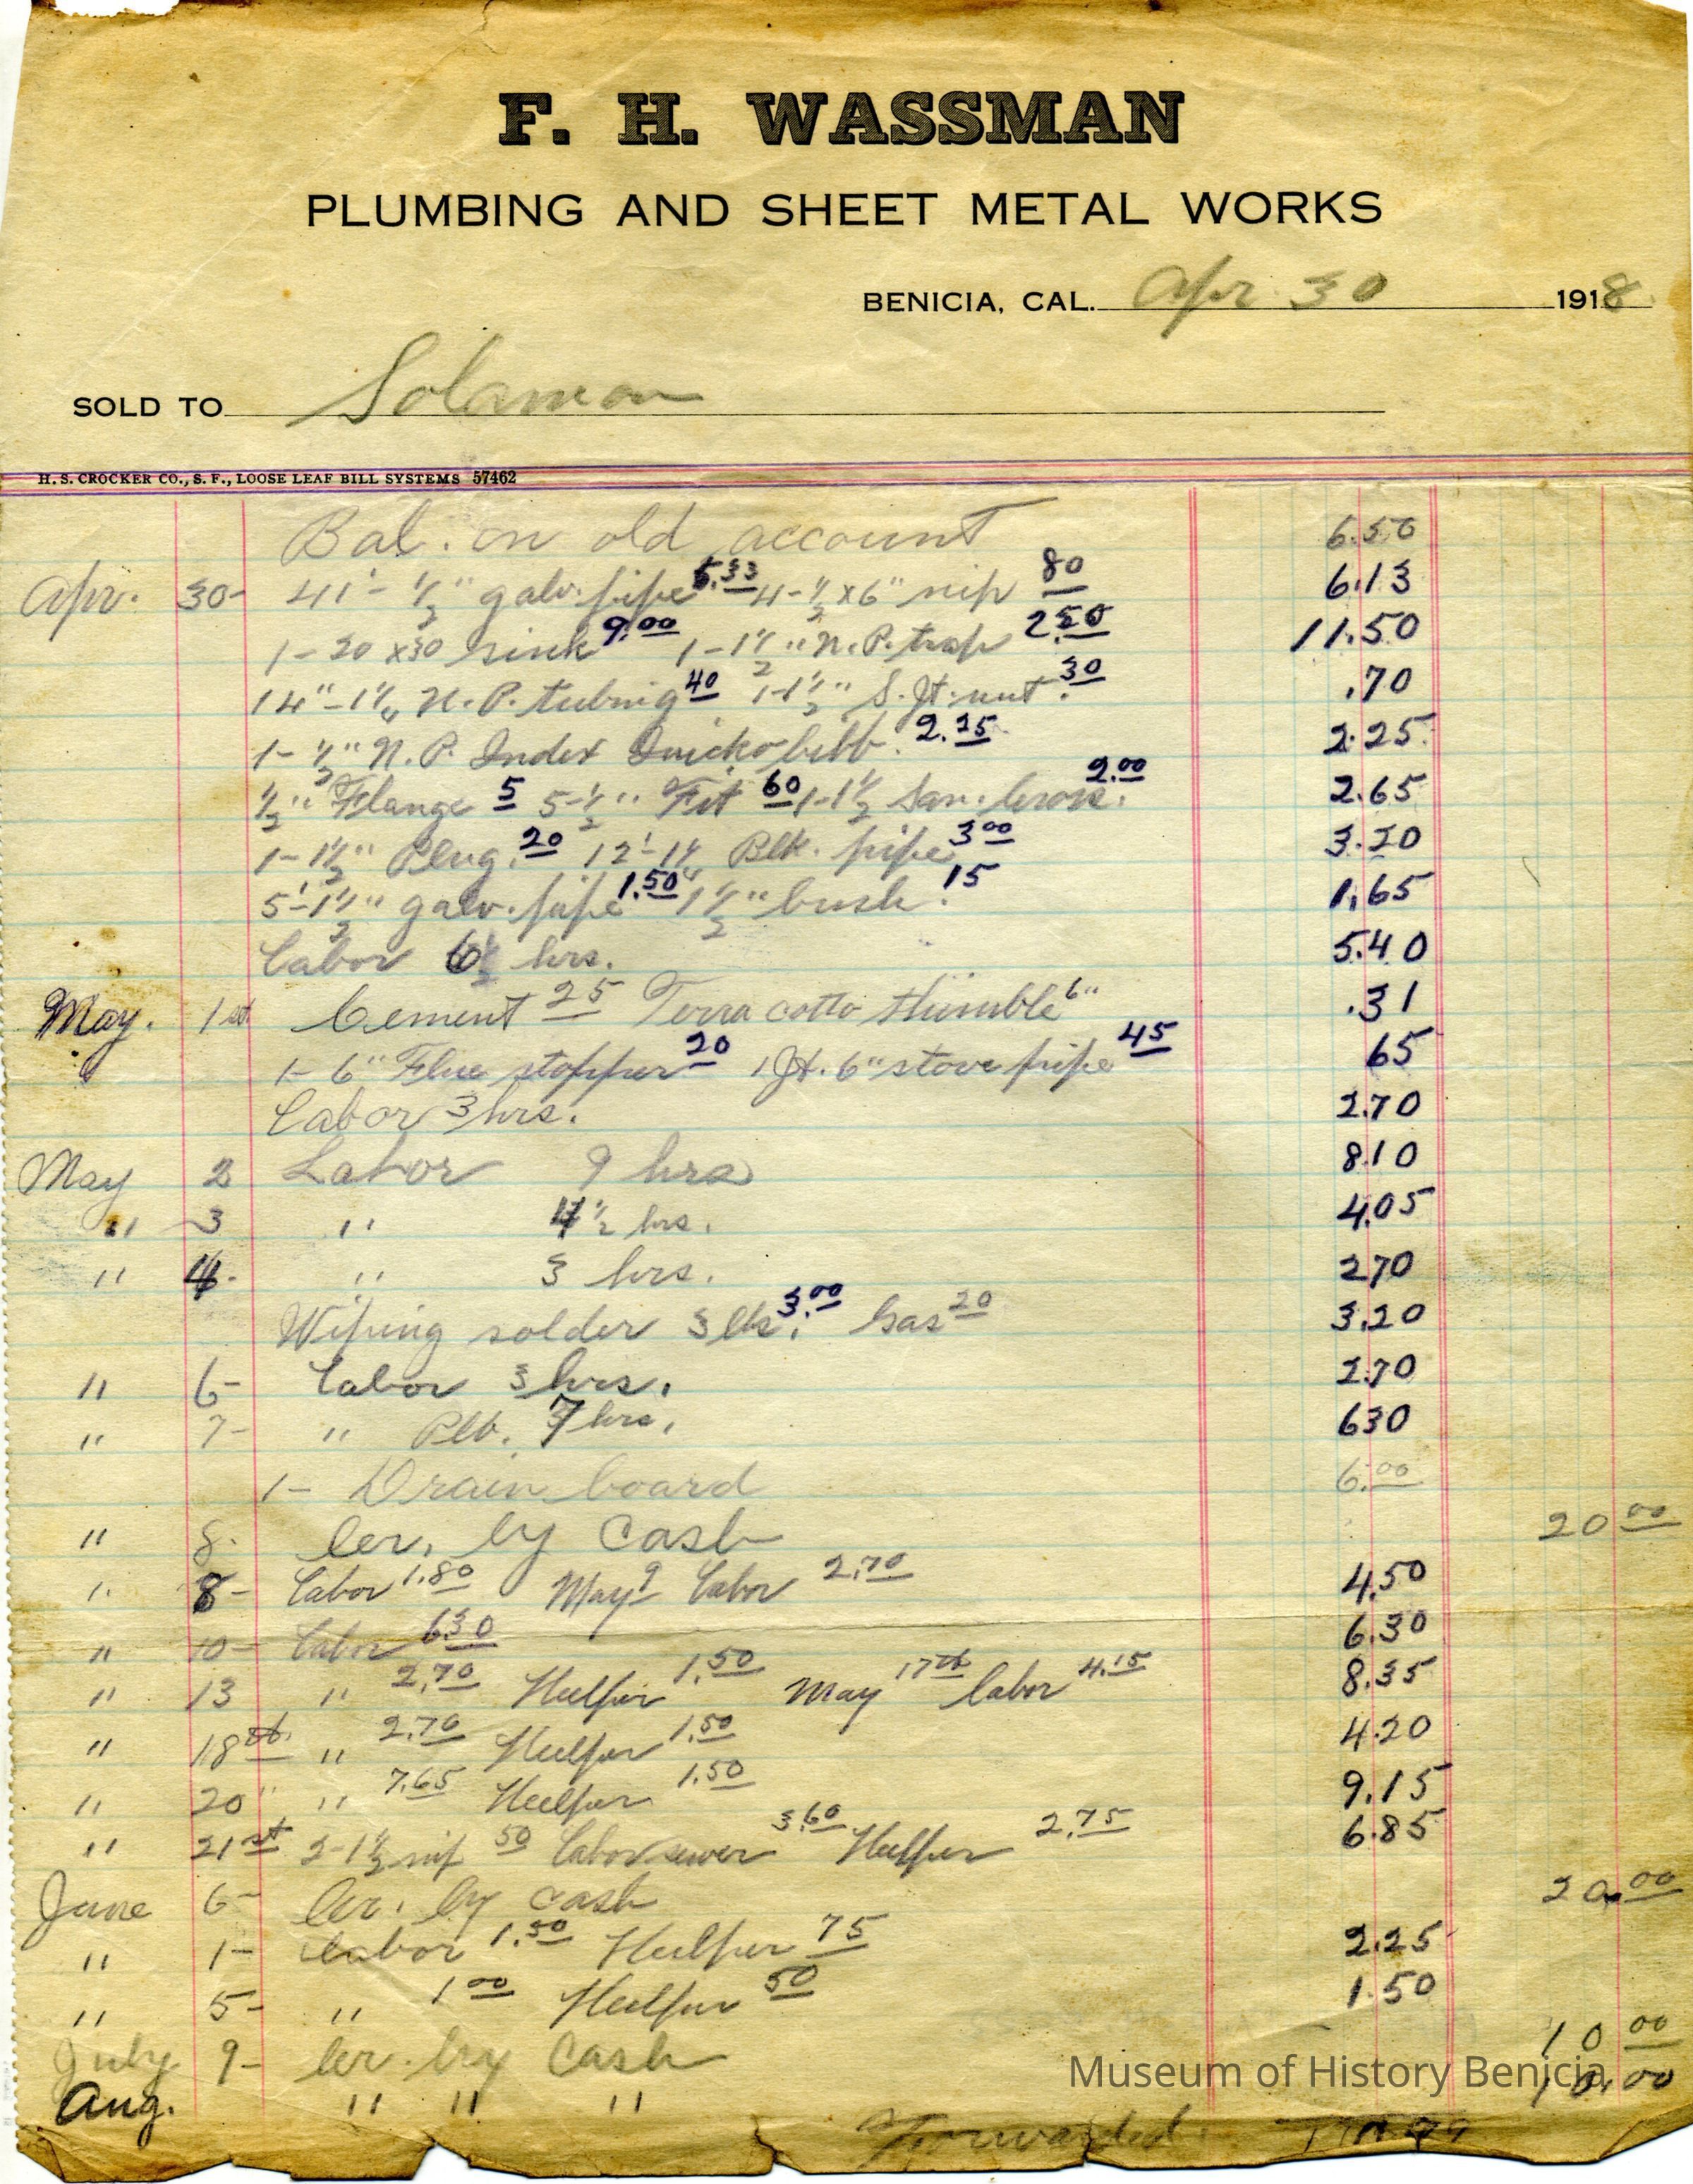 F. H. WASSMAN
PLUMBING AND SHEET METAL WORKS
BENICIA, CAL. Apr 30 1918
SOLD TO Solamon
H. S. CROCKER CO., S. F., LOOSE LEAF BILL SYSTEMS 57462
Bal. on old account 6.50
Apr. 30- 41'- 1/2" galv. pipe 5.33 4-1/2 x 6" nip 80 6.13
1-20 x 30 sink 9.00 1-1 1/2" N. P. trap 2.50 11.50
14"-1 1/4 N. P. tubing 40 1-1 1/2" S. Jt. nut. 30 .70
1-1/2" N. P. Index Quicko bibb. 2.25 2.25
1/2" Flange 5 5-1/2" Fit 60 1-1 1/2 San. Cross. 2.00 2.65
1-1 1/2" Plug. 20 12'-1 1/4 Blk. pipe 3.00 3.20
5'-1 1/2" galv. pipe 1.50 1 1/2" bush. 15 1.65
Labor 6 hrs. 5.40
May. 1st Cement 25 Terra cotto thimble 6" .31
1-6" Flue stopper 20 1 Jt. 6" stove pipe 45 65
Labor 3 hrs. 2.70
May 2 Labor 9 hrs 8.10
" 3 " 4 1/2 hrs. 4.05
" 4- " 3 hrs. 2.70
Wiping solder 3 lbs. 3.00 Gas 20 3.20
" 6- Labor 3 hrs. 2.70
" 7- " Plb. 7 hrs. 6.30
1- Drain board 6.00
" 8. Cr. by Cash 20.00
" 8- Labor 1.80 May 9 Labor 2.70 4.50
" 10- Labor 6.30 6.30
" 13 " 2.70 Helper 1.50 May 17th labor 4.15 8.35
" 18th " 2.70 Helper 1.50 4.20
" 20" " 7.65 Helper 1.50 9.15
" 21st 2-1 1/2 nip 50 Labor sewer 3.60 Helper 2.75 6.85
June 6- Cr. by cash 20.00
" 1- Labor 1.50 Helper 75 2.25
" 5- " 1.00 Helper 50 1.50
July 9- Cr. by Cash 10.00
Aug. " " " 10.00
Forwarded.
Museum of History Benicia